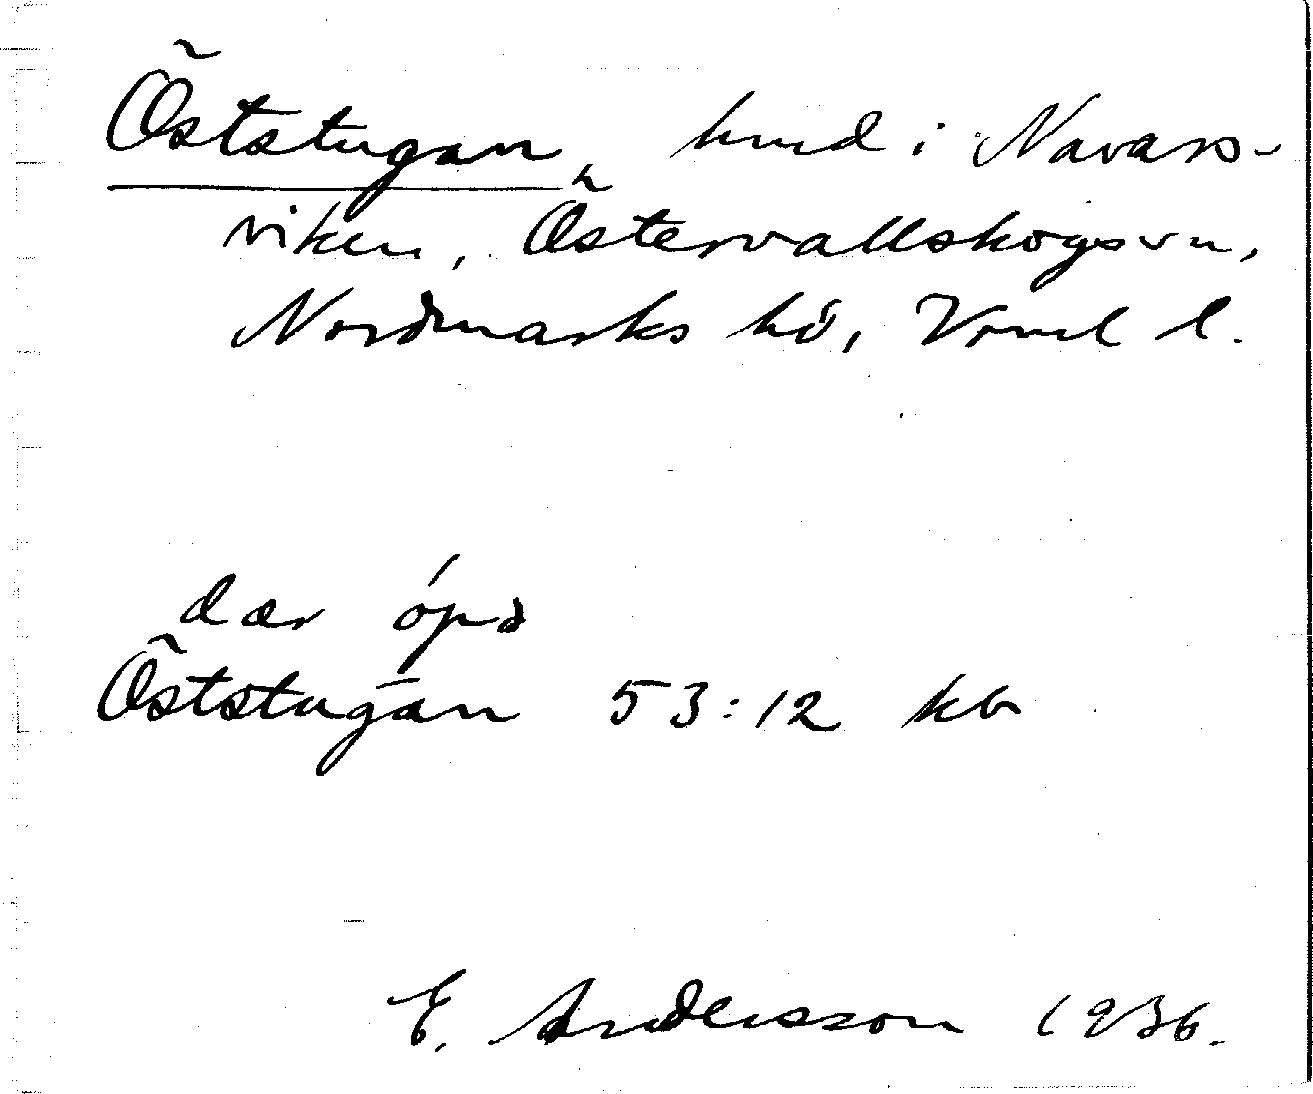 Õststugan, hmd i Navars-
viken, Östervallskogs sn,
Nordmarks hd, Vrml l.
dær
Õststugan 53:12 kb
E. Andersson 1936.